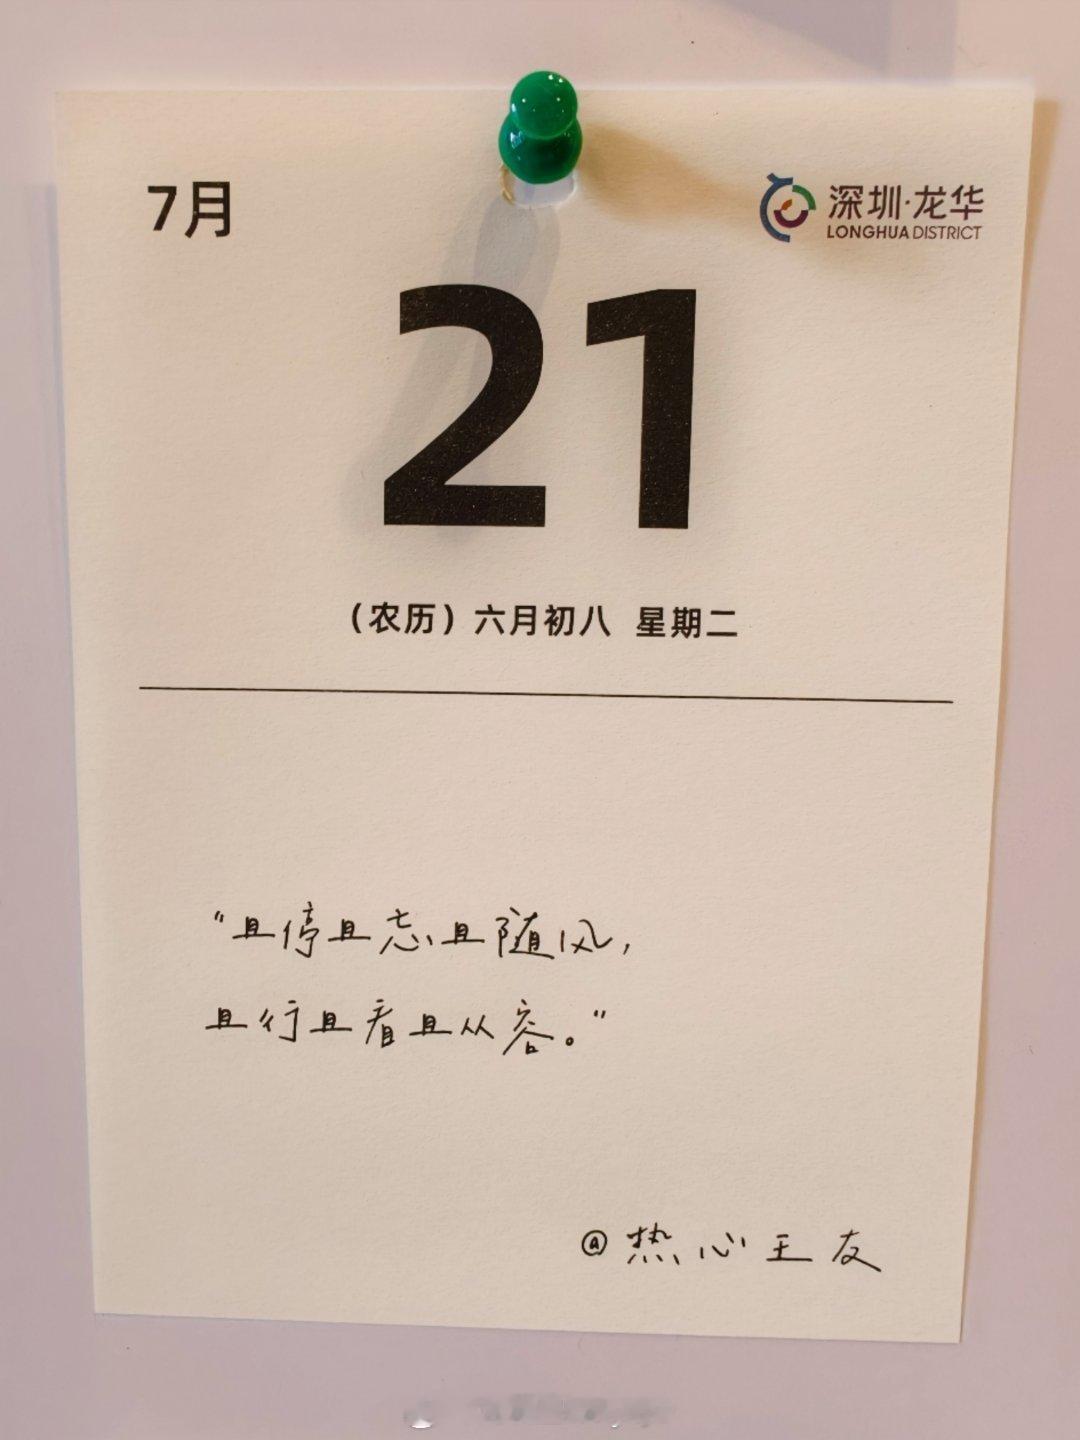 7月
深圳·龙华
LONGHUA DISTRICT
21
（农历）六月初八 星期二
“且停且忘且随风，
且行且看且从容。”
@热心王友